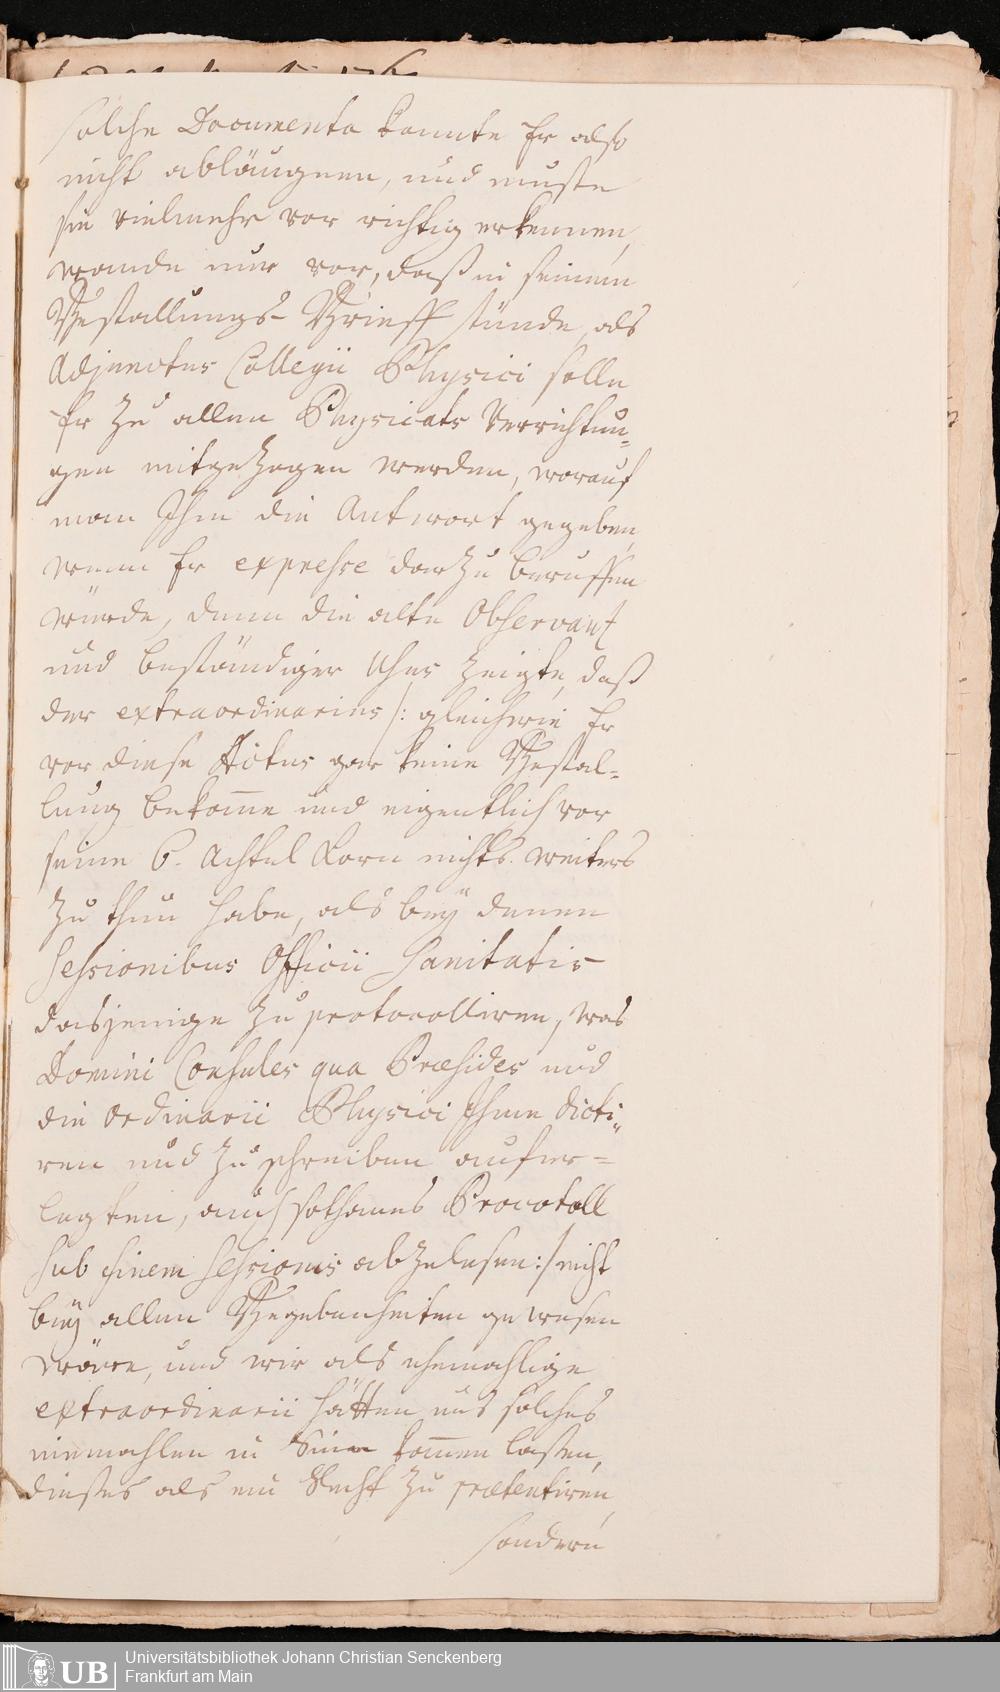 solche Documenta konnte Er also
nicht abläugnen, und muste
sie vielmehr vor richtig erkennen,
wande nur vor, daß in seinem
Bestallungs-Brieff stünde, als
Adjunctus Collegii Physici solle
Er zu allen Physicats Verrichtun=
gen mitgezogen werden, worauf
man Ihm die Antwort gegeben,
wenn Er expresse darzu beruffen
würde, denn die alte Observanz
und beständiger Usus zeigte, daß
der extraordinarius /: gleichwie Er
vor diese Actus gar keine Bestal=
lung bekom̄e und eigentlich vor
seine 6. Achtel Korn nichts weiters
zu thun habe, als beÿ denen
Sessionibus Officii Sanitatis
dasjenige zu protocolliren, was
Domini Consules qua Præsides und
die Ordinarii Physici Ihme dicti=
ren und zu schreiben aufer=
legten, auch sothanes Protocoll
sub finem Sessionis abzulesen :/ nicht
beÿ allen Begebenheiten gewesen
wäre, und wir als ehemahlige
extraordinarii hätten uns solches
niemahlen in Sinn kom̄en laßen,
dießes als ein Recht zu prætentiren,
sondern
Universitätsbibliothek Johann Christian Senckenberg
Frankfurt am Main
UB